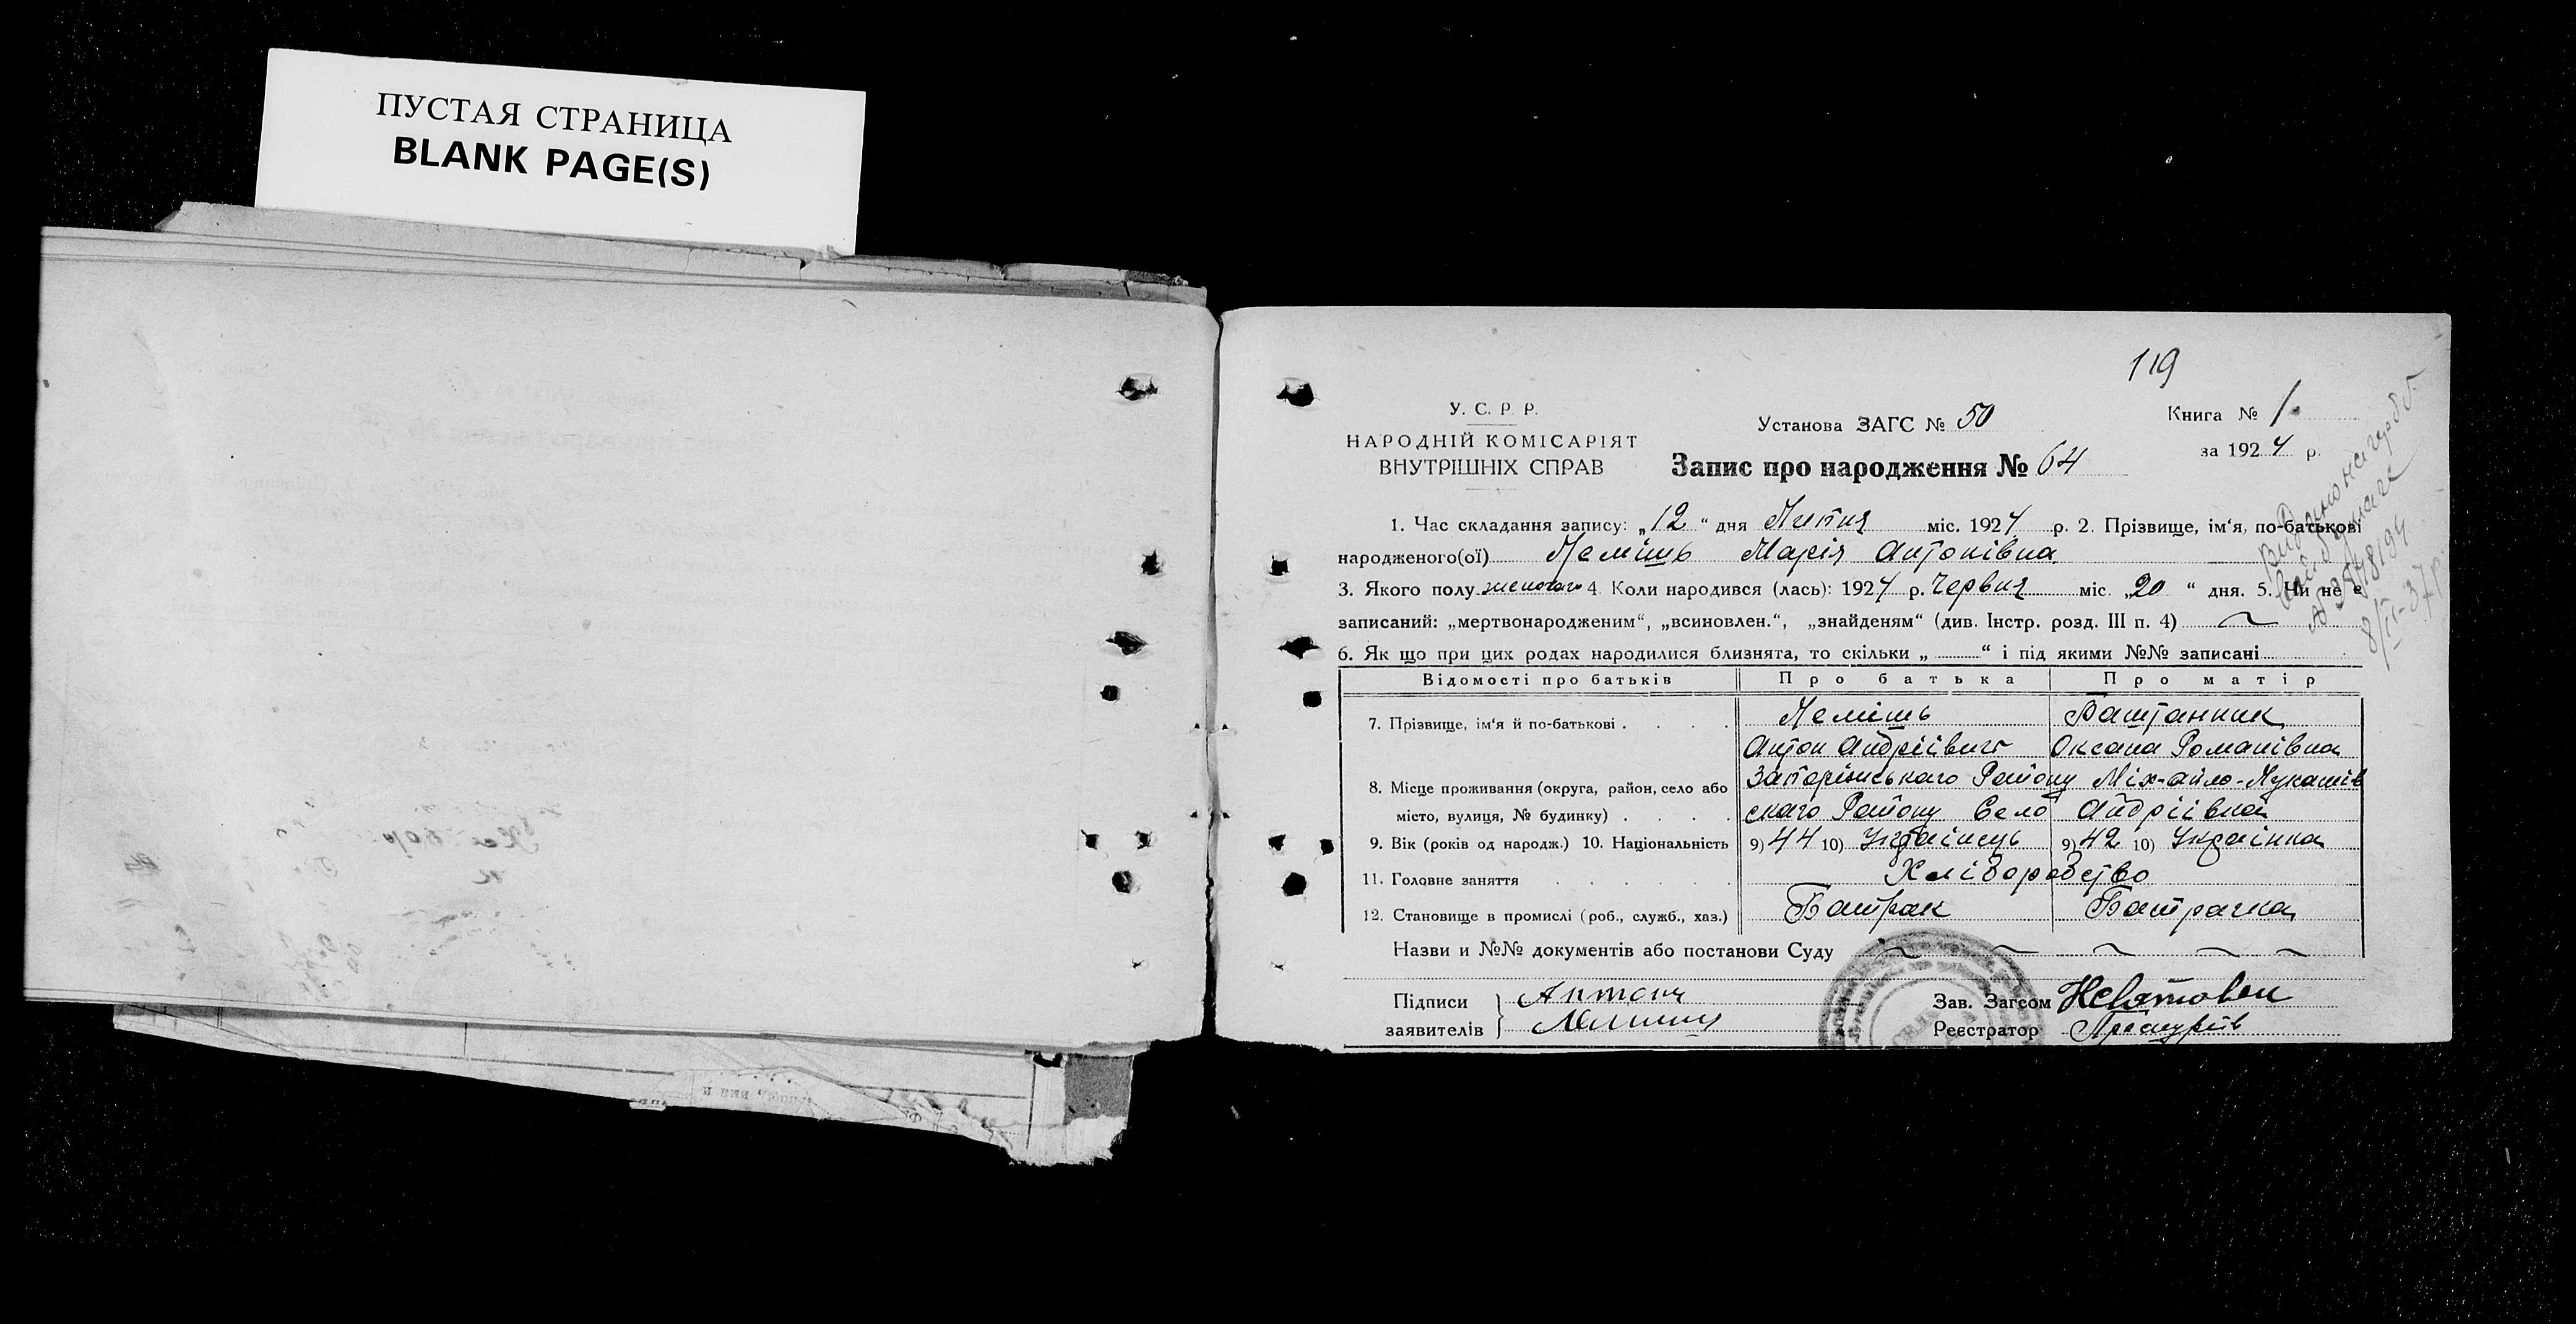 ПУСТАЯ СТРАНИЦА
BLANK PAGE(S)
119
У. С. Р. Р.
НАРОДНІЙ КОМІСАРІЯТ
ВНУТРІШНІХ СПРАВ
Установа ЗАГС № 50
Книга № 1.
за 1924 р.
Запис про народження № 64
1. Час складання запису: „12“ дня Липня міс. 1924 р. 2. Прізвище, ім'я, по-батькові
народженого(ої) Леміш Марія Антонівна
3. Якого полу женского 4. Коли народився (лась): 1924 р. Червня міс. „20“ дня. 5. Чи не є
записаний: „мертвонародженим“, „всиновлен.“, „знайденям“ (див. Інстр. розд. III п. 4)
6. Як що при цих родах народилися близнята, то скільки „ “ і під якими №№ записані
Відомості про батьків Про батька Про матір
7. Прізвище, ім'я й по-батькові . . . . Лемішь Баштанник
Антон Андріївич Оксана Романівна
8. Місце проживання (округа, район, село або Запоріжського Району Міх-айло-Лукашів
місто, вулиця, № будинку) . . . . ского Району Село Андріївка
9. Вік (років од народж.) 10. Національність 9) 44 10) Українець 9) 42 10) Українка
11. Головне заняття . . . . . . Хліборобство
12. Становище в промислі (роб., служб., хаз.) Батрак Батрачка
Назви и №№ документів або постанови Суду
Підписи Антон
заявителів
Зав. Загсом
Реєстратор